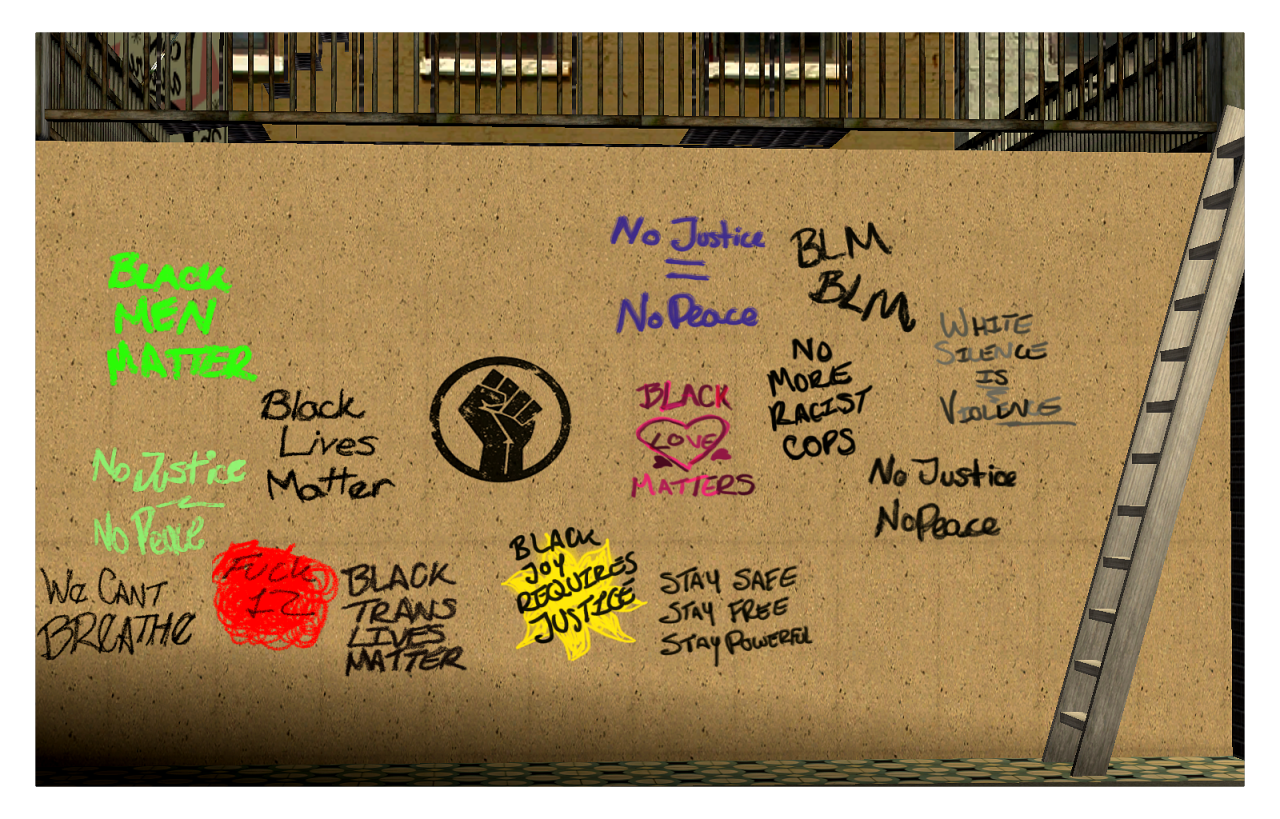 BLACK
MEN
MATTER
No Justice
No Peace
We CANT
BREATHE
Black
Lives
Matter
FUCK
12
BLACK
TRANS
LIVES
MATTER
BLACK
JOY
REQUIRES
JUSTICE
No Justice
=
No Peace
BLACK
LOVE
MATTERS
STAY SAFE
STAY FREE
STAY POWERFUL
BLM
BLM
NO
MORE
RACIST
COPS
WHITE
SILENCE
IS
VIOLENCE
No Justice
No Peace